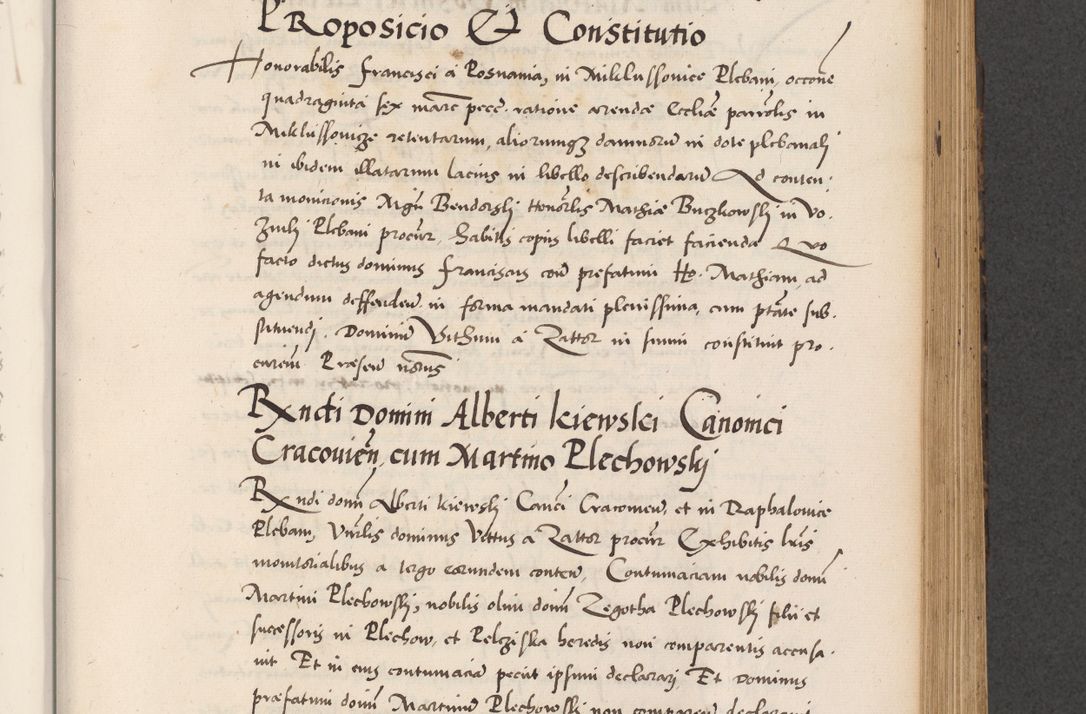 PRoposicio Et Constitutio
Honorabilis Francisci a Posnania, in Miklussovice Plebani, occone
quadraginta sex marc pecc. ratione arendae Eccliae parrolis in
Miklussovicze retentarum, aliorumqz damnorum in dote plebanali
in ibidem illatarum lacius in libello describendarum Ad conten-
ta monicionis Mgri Bendorski Honorlis Mathiae Buczkowski in Vo-
Plebani procur, habitis copiis libelli faciet facienda Quo
facto dictus dominus Franciscus eum prefatum Ho. Mathiam, ad
agendum deffenden. in forma mandati plenissima, cum ptate sub-
stituendi. Dominum Vithum a Zattor in simui constituit pro-
curem Praesen notus
Rxndi Domini Alberti Kiewski Canonici
Cracovien, cum Martino Plechowski
Rxndi domi Alberti Kiewski Canci Cracovien, et in Raphalovice
Plebani, Venrlis dominus Vittus a Zattor procur Exhibitis lris
monitorialibus a tergo earundem conten, Contumaciam nobilis domi
Martini Plechowski, nobilis olim domi Zegotha Plechowski filii et
successoris in Plechow, et Pelcziska heredis non comparentis accusa-
vit Et in eius contumaciam peciit ipsum declarari, Et Dominus
praefatum domi Martinum Plechowski non comparen declaravit